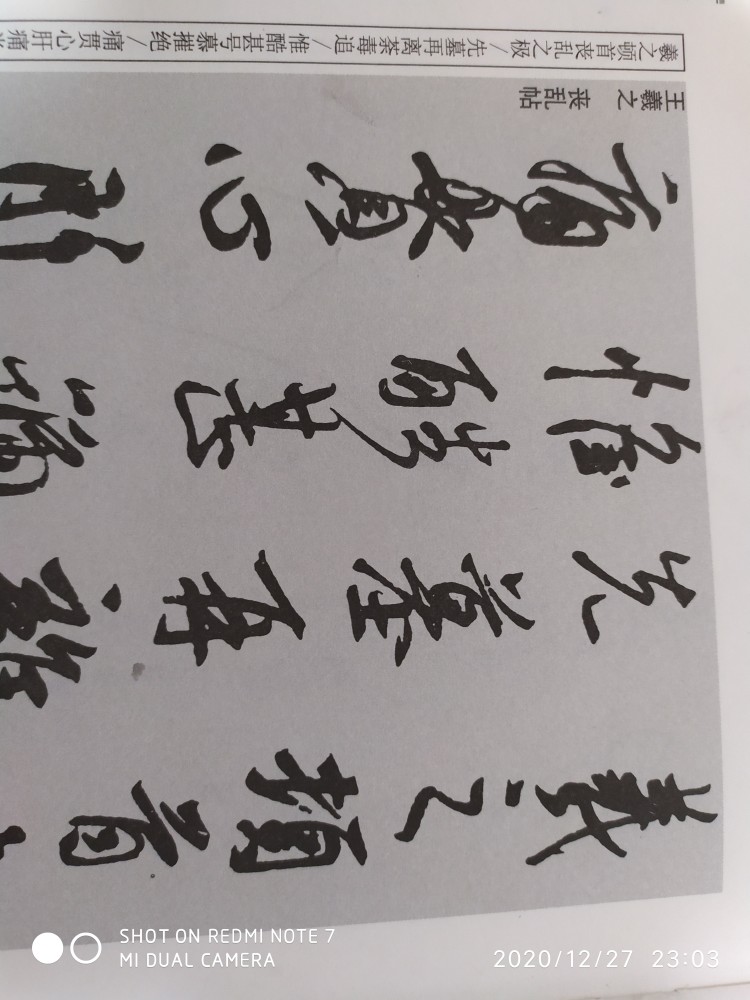 羲之顿首丧乱之极/先墓再离荼毒追/惟酷甚号慕摧绝/痛贯心肝痛
王羲之 丧乱帖
羲之頓首
先墓再離
惟酷甚
痛貫心肝
SHOT ON REDMI NOTE 7
MI DUAL CAMERA
2020/12/27 23:03